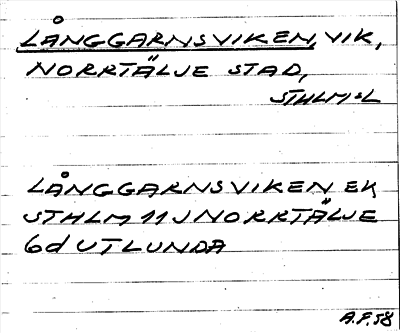 LÅNGGARNSVIKEN, VIK,
NORRTÄLJE STAD,
STHLM:L
LÅNGGARNSVIKEN EK
STHLM 11J NORRTÄLJE
6d UTLUNDA
A.F. 58